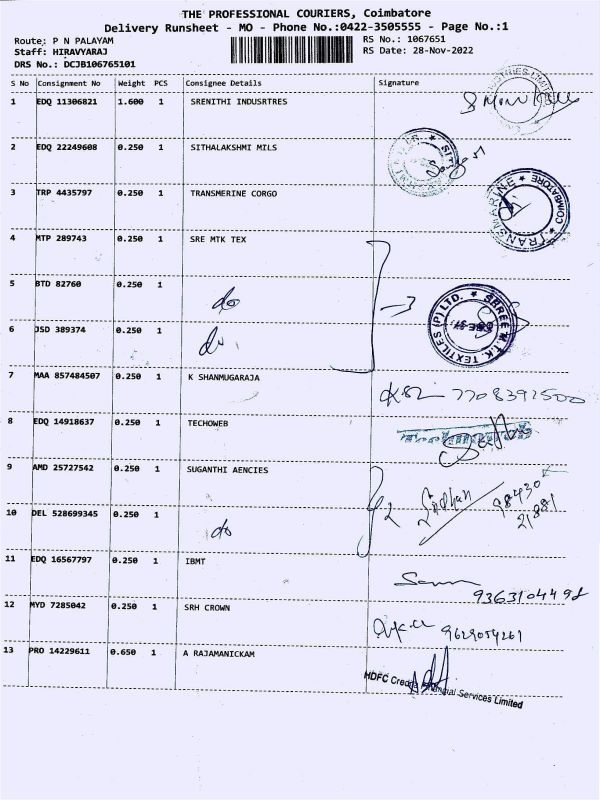 THE PROFESSIONAL COURIERS, Coimbatore
Delivery Runsheet - MO - Phone No.:0422-3505555 - Page No.:1
Route: P N PALAYAM
RS No.: 1067651
Staff: HIRAVYARAJ
RS Date: 28-Nov-2022
DRS No.: DCJB106765101
S No Consignment No Weight PCS Consignee Details Signature
1 EDQ 11306821 1.600 1 SRENITHI INDUSRTRES
2 EDQ 22249608 0.250 1 SITHALAKSHMI MILS
3 TRP 4435797 0.250 1 TRANSMERINE CORGO
TRANSMARINE ★ COIMBATORE ★
4 MTP 289743 0.250 1 SRE MTK TEX
5 BTD 82760 0.250 1 do
3
SHREE M.T.K. TEXTILES (P) LTD. ★
6 JSD 389374 0.250 1 do
7 MAA 857484507 0.250 1 K SHANMUGARAJA
7708391500
8 EDQ 14918637 0.250 1 TECHOWEB
9 AMD 25727542 0.250 1 SUGANTHI AENCIES
2 98430
21881
10 DEL 528699345 0.250 1 do
11 EDQ 16567797 0.250 1 IBMT
9363104498
12 MYD 7285042 0.250 1 SRH CROWN
9629054261
13 PRO 14229611 0.650 1 A RAJAMANICKAM
HDFC Financial Services Limited